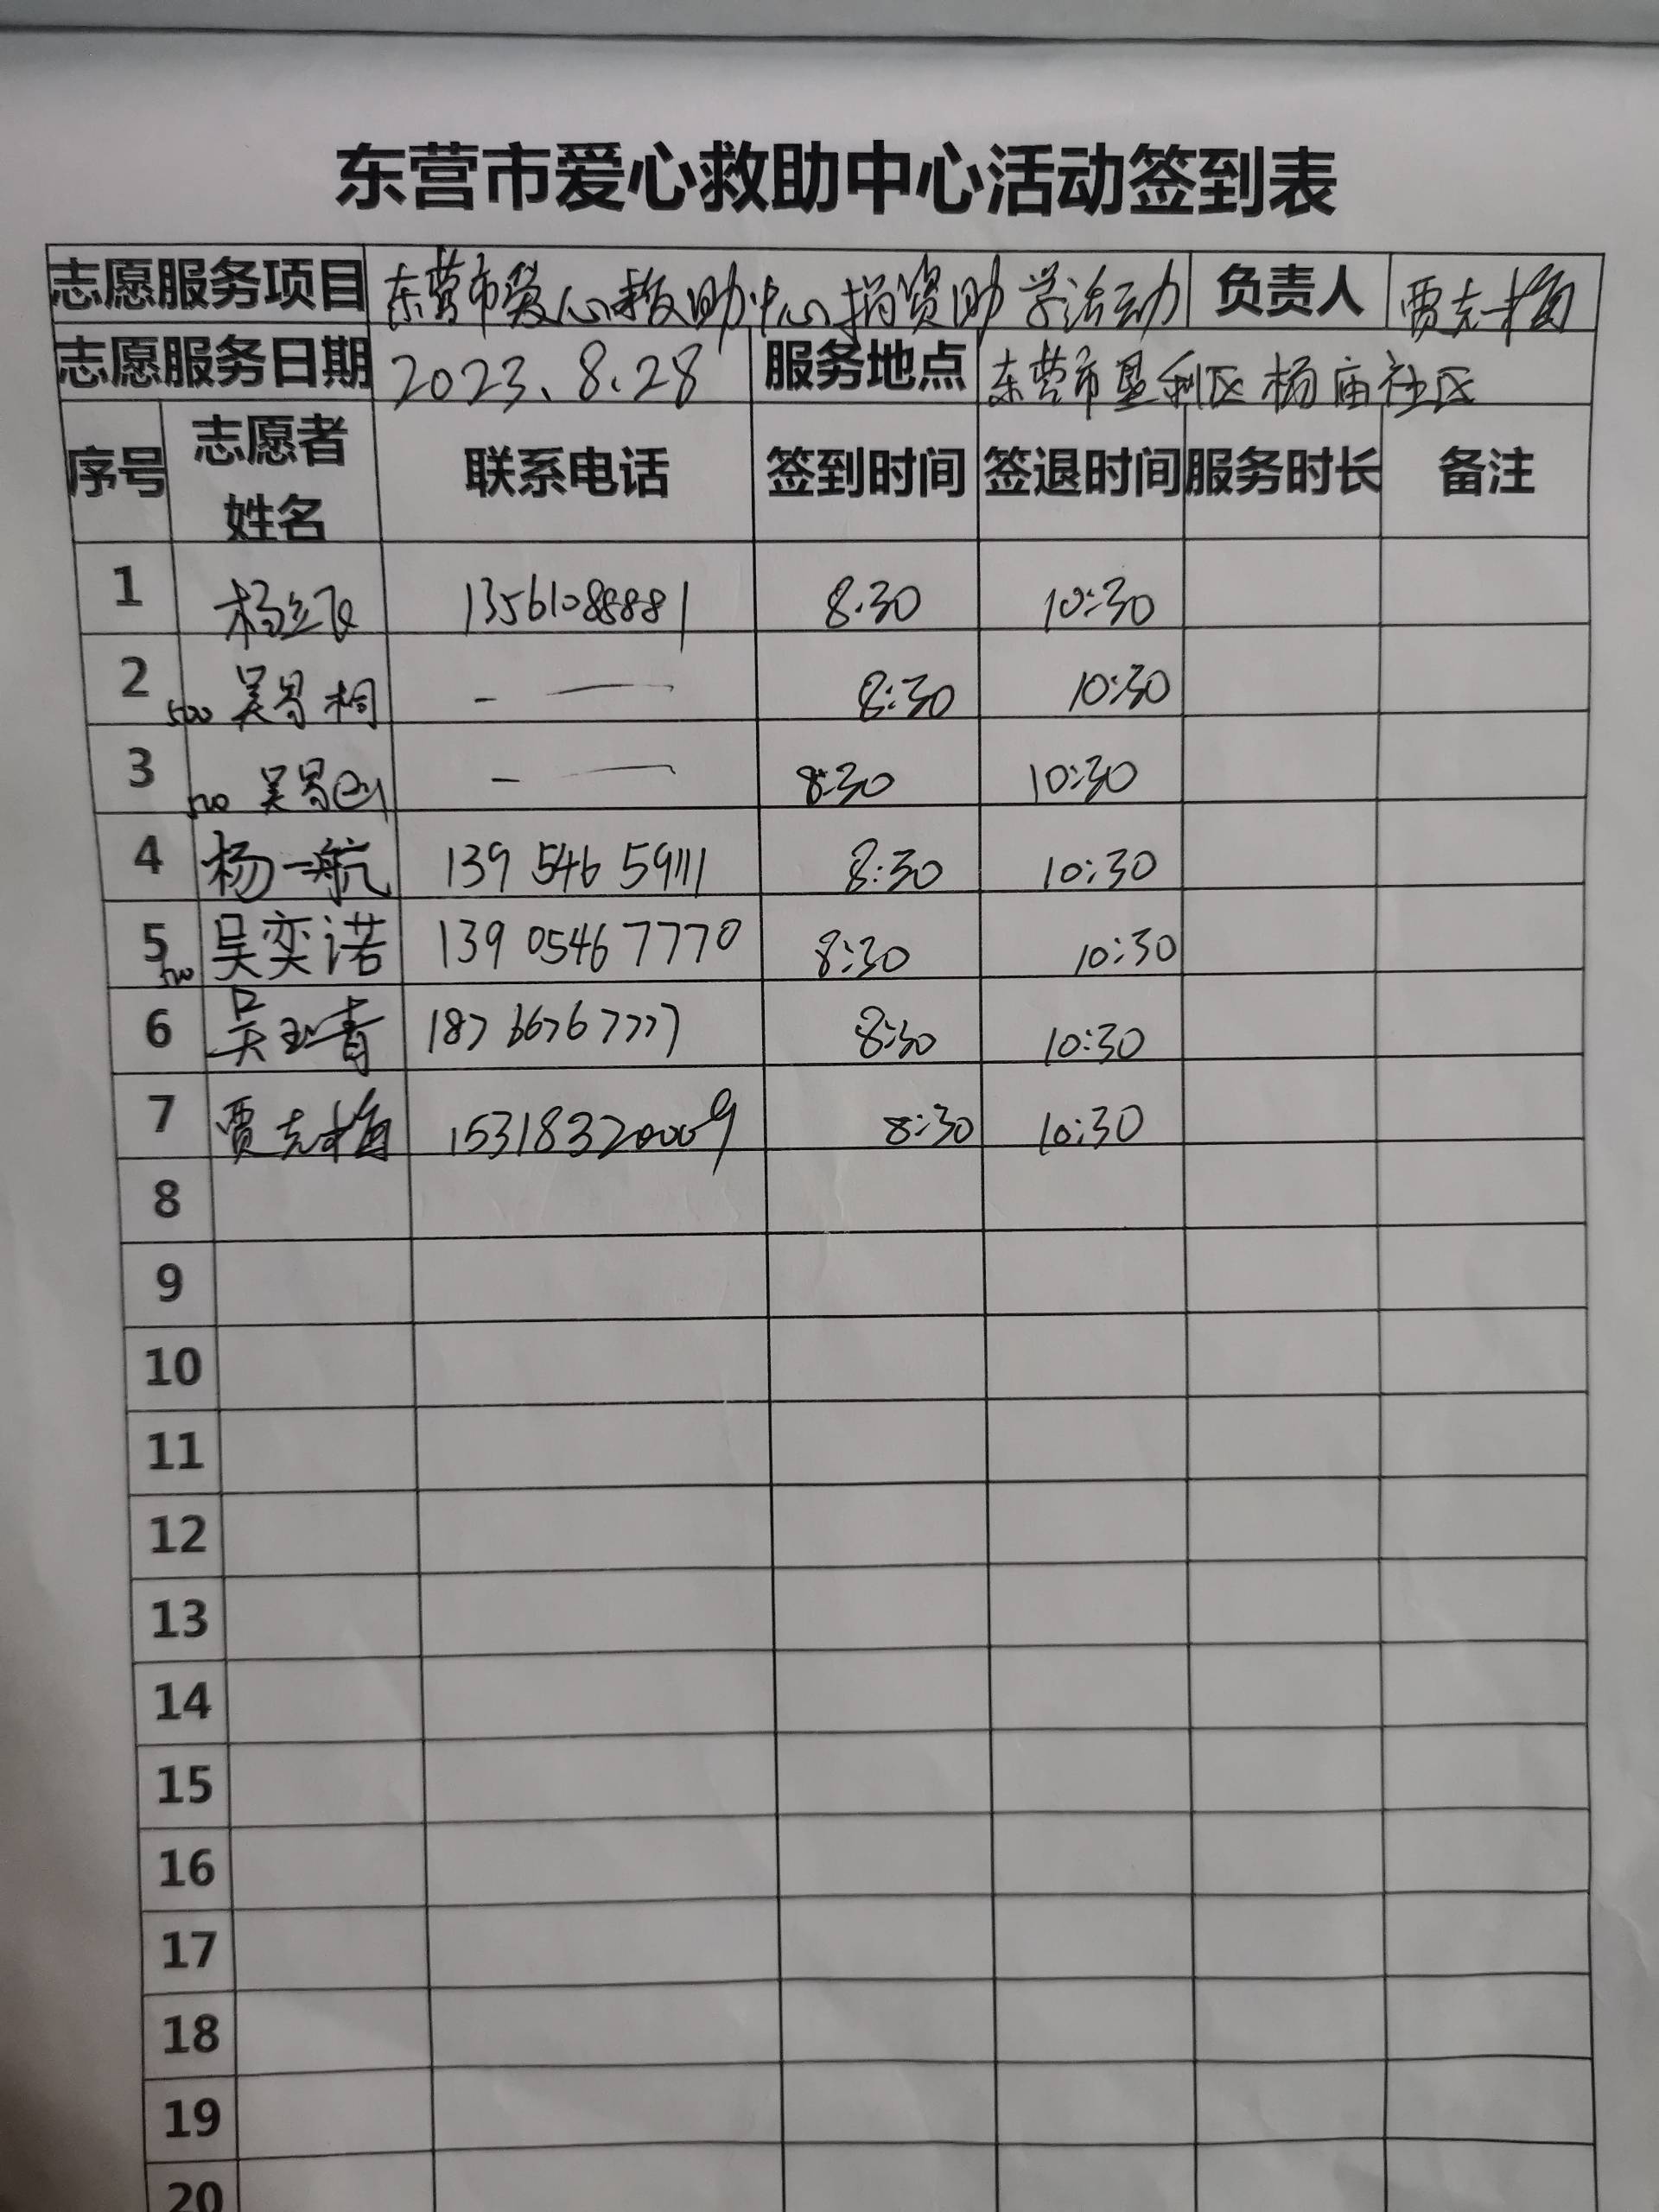 东营市爱心救助中心活动签到表
志愿服务项目 东营市爱心救助中心捐资助学活动 负责人 贾克梅
志愿服务日期 2023.8.28 服务地点 东营市垦利区杨庙社区
序号 志愿者姓名 联系电话 签到时间 签退时间 服务时长 备注
1 杨立飞 13561088881 8:30 10:30
2 500 吴昺桐 — — 8:30 10:30
3 500 吴昺 — — 8:30 10:30
4 杨一航 139 546 59111 8:30 10:30
5 500 吴奕诺 139 0546 7770 8:30 10:30
6 吴玉青 187 6676 7777 8:30 10:30
7 贾克梅 15318320009 8:30 10:30
8
9
10
11
12
13
14
15
16
17
18
19
20